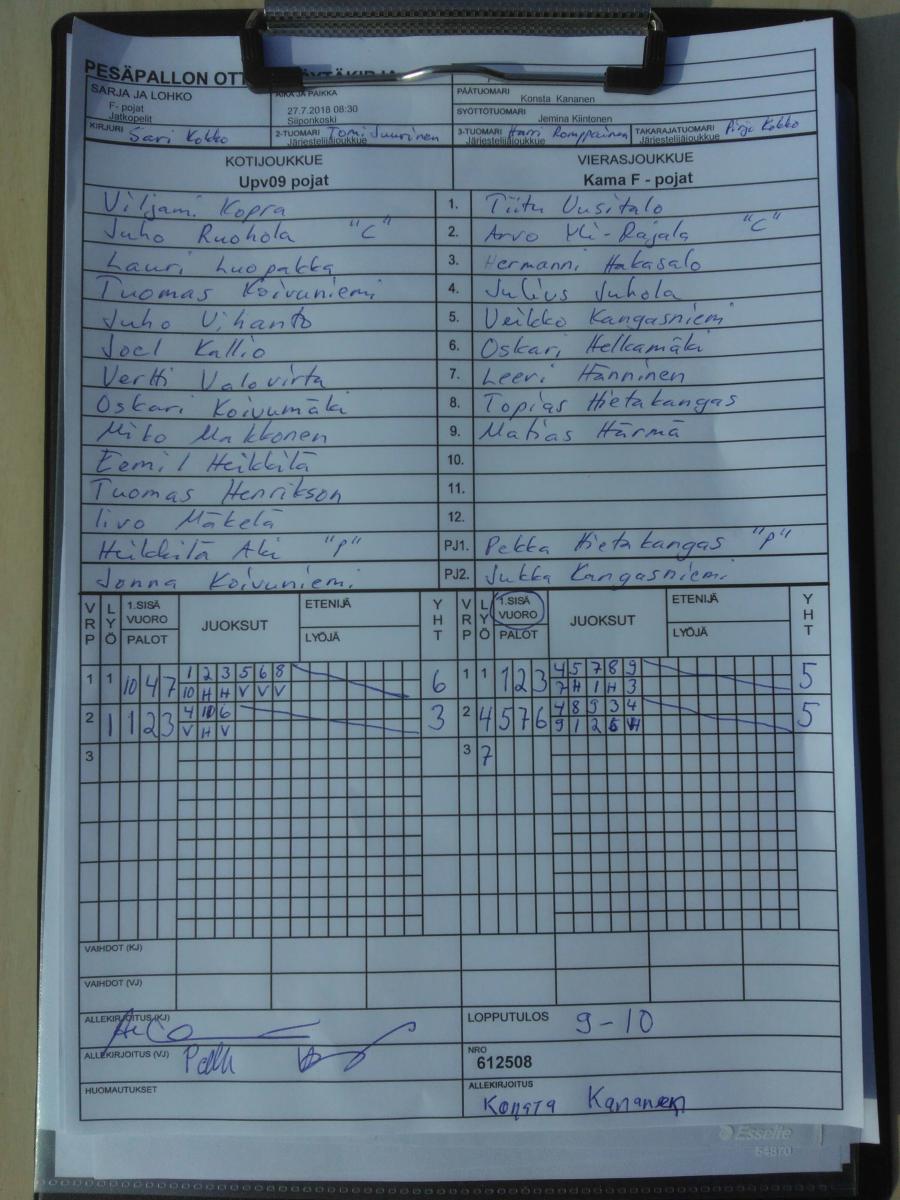 PESÄPALLON OTT
SARJA JA LOHKO
F- pojat
Jatkopelit
AIKA JA PAIKKA
27.7.2018 08:30
Siiponkoski
PÄÄTUOMARI
Konsta Kananen
SYÖTTÖTUOMARI
Jemina Kiintonen
KIRJURI Sari Kokko
2-TUOMARI Tomi Juurinen
Järjestelijäjoukkue
3-TUOMARI Harri Romppainen
Järjestelijäjoukkue
TAKARAJATUOMARI Pirjo Kokko
KOTIJOUKKUE VIERASJOUKKUE
Upv09 pojat Kama F - pojat
Viljami Kopra 1. Tiitu Uusitalo
Juho Ruohola "C" 2. Arvo Yli-Rajala "C"
Lauri Luopakka 3. Hermanni Hakasalo
Tuomas Koivuniemi 4. Julius Juhola
Juho Vihanto 5. Veikko Kangasniemi
Joel Kallio 6. Oskari Helkamäki
Vertti Valovirta 7. Leevi Hänninen
Oskari Koivumäki 8. Topias Hietakangas
Miko Makkonen 9. Matias Härmä
Eemil Heikkilä 10.
Tuomas Henrikson 11.
Iivo Mäkelä 12.
Heikkilä Aki "P" PJ1. Pekka Hietakangas "P"
Jonna Koivuniemi PJ2. Jukka Kangasniemi
VRP LYÖ 1.SISÄ VUORO PALOT JUOKSUT ETENIJÄ LYÖJÄ YHT VRP LYÖ 1.SISÄ VUORO PALOT JUOKSUT ETENIJÄ LYÖJÄ YHT
1 1 10 4 7 1 2 3 5 6 8 6 1 1 1 2 3 4 5 7 8 9 5
10 H H V V V 7 H 1 H 3
2 1 1 2 3 4 10 6 3 2 4 5 7 6 7 8 9 3 4 5
V H V 9 1 2 H
3 3 7
VAIHDOT (KJ)
VAIHDOT (VJ)
ALLEKIRJOITUS (KJ)
LOPPUTULOS 9-10
ALLEKIRJOITUS (VJ)
NRO
612508
HUOMAUTUKSET
ALLEKIRJOITUS
Konsta Kananen
Esselte
54870